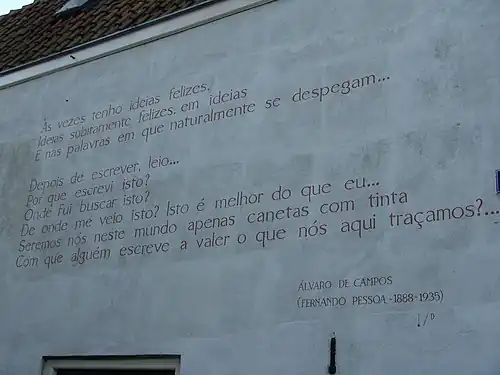 Às vezes tenho ideias felizes,
Ideias subitamente felizes, em ideias
E nas palavras em que naturalmente se despegam...
Depois de escrever, leio...
Por que escrevi isto?
Onde fui buscar isto?
De onde me veio isto? Isto é melhor do que eu...
Seremos nós neste mundo apenas canetas com tinta
Com que alguém escreve a valer o que nós aqui traçamos?...
ÁLVARO DE CAMPOS
(FERNANDO PESSOA - 1888-1935)